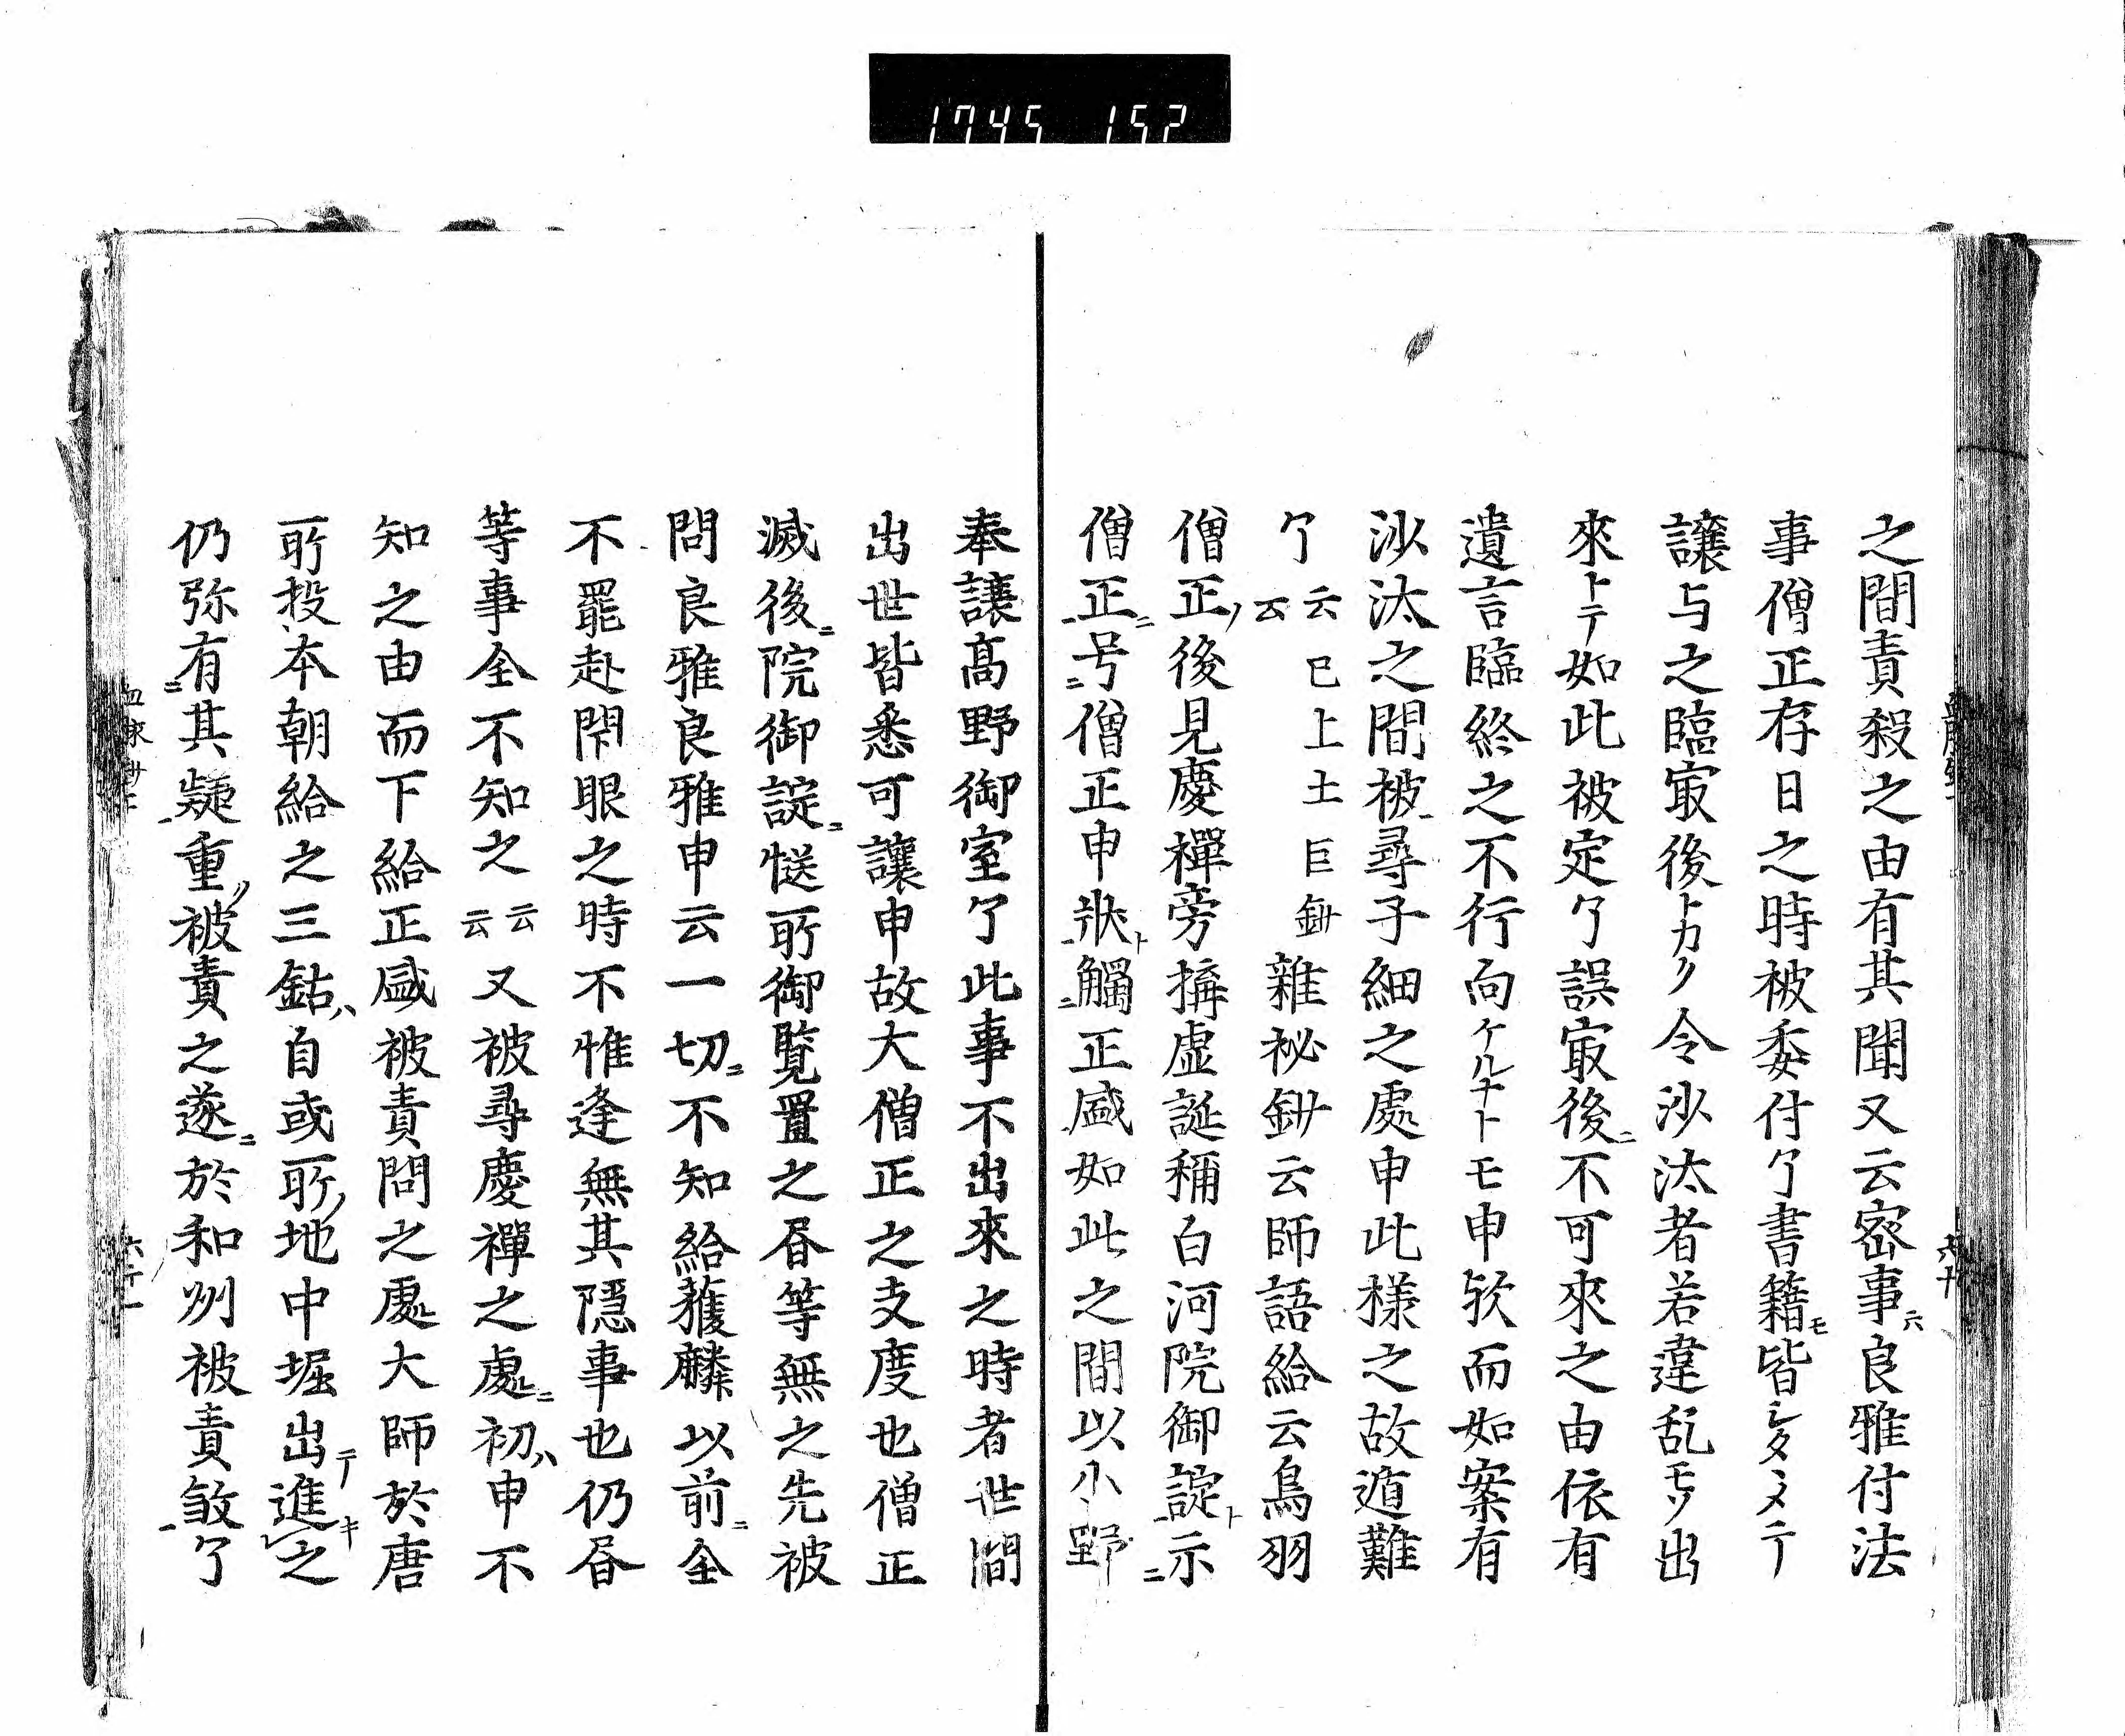 1745 152
之間責殺之由有其聞又云密事六良雅付法
事僧正存日之時被委付了書籍モ皆シタヽメテ
譲与之臨㝡後トカク令沙汰者若違乱モソ出
來トテ如此被定了誤㝡後ニ不可來之由依有
遺言臨終之不行向ケルナトモ申欤而如案有
沙汰之間被尋子細之處申此様之故遁難
了云云已上土巨鈔雜秘鈔云師語給云鳥羽
僧正ノ後見慶禪旁搆虚誕稱白河院御諚ト示ニ
僧正ニ号ニ僧正申狀ト觸ニ正盛如此之間以小野
奉讓髙野御室了此事不出來之時者世間
出世皆悉可讓申故大僧正之支度也僧正
滅後ニ院御諚ニ㥓所御覧置之昏等無之先被
問良雅良雅申云一切ニ不知給蒦麟以前ニ全
不罷赴閇眼之時不惟逢無其隱事也仍昏
等事全不知之云云又被尋慶禪之處ニ初ハ申不
知之由而下給正盛被責問之處大師於唐
所投本朝給之三鈷ハ自或所ノ地中堀出テ進キ之
仍弥有ニ其疑重〃被責之遂ニ於和州被責敜了
六十
六十一